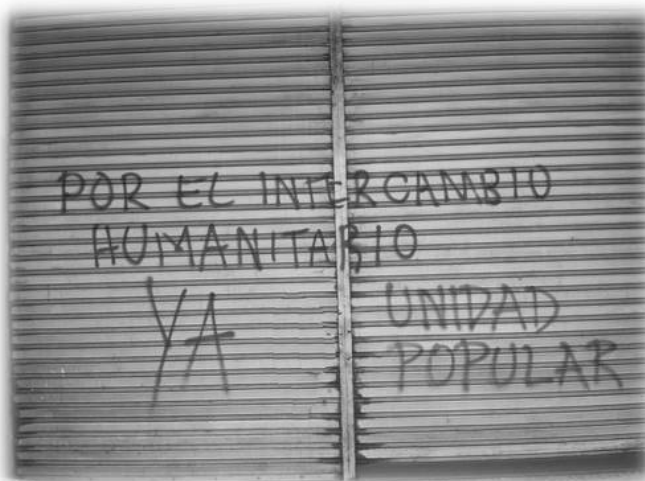 POR EL INTERCAMBIO
HUMANITARIO
YA
UNIDAD
POPULAR